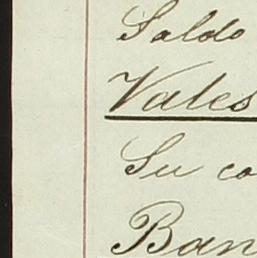 Saldo
Vales
Su co
Ban